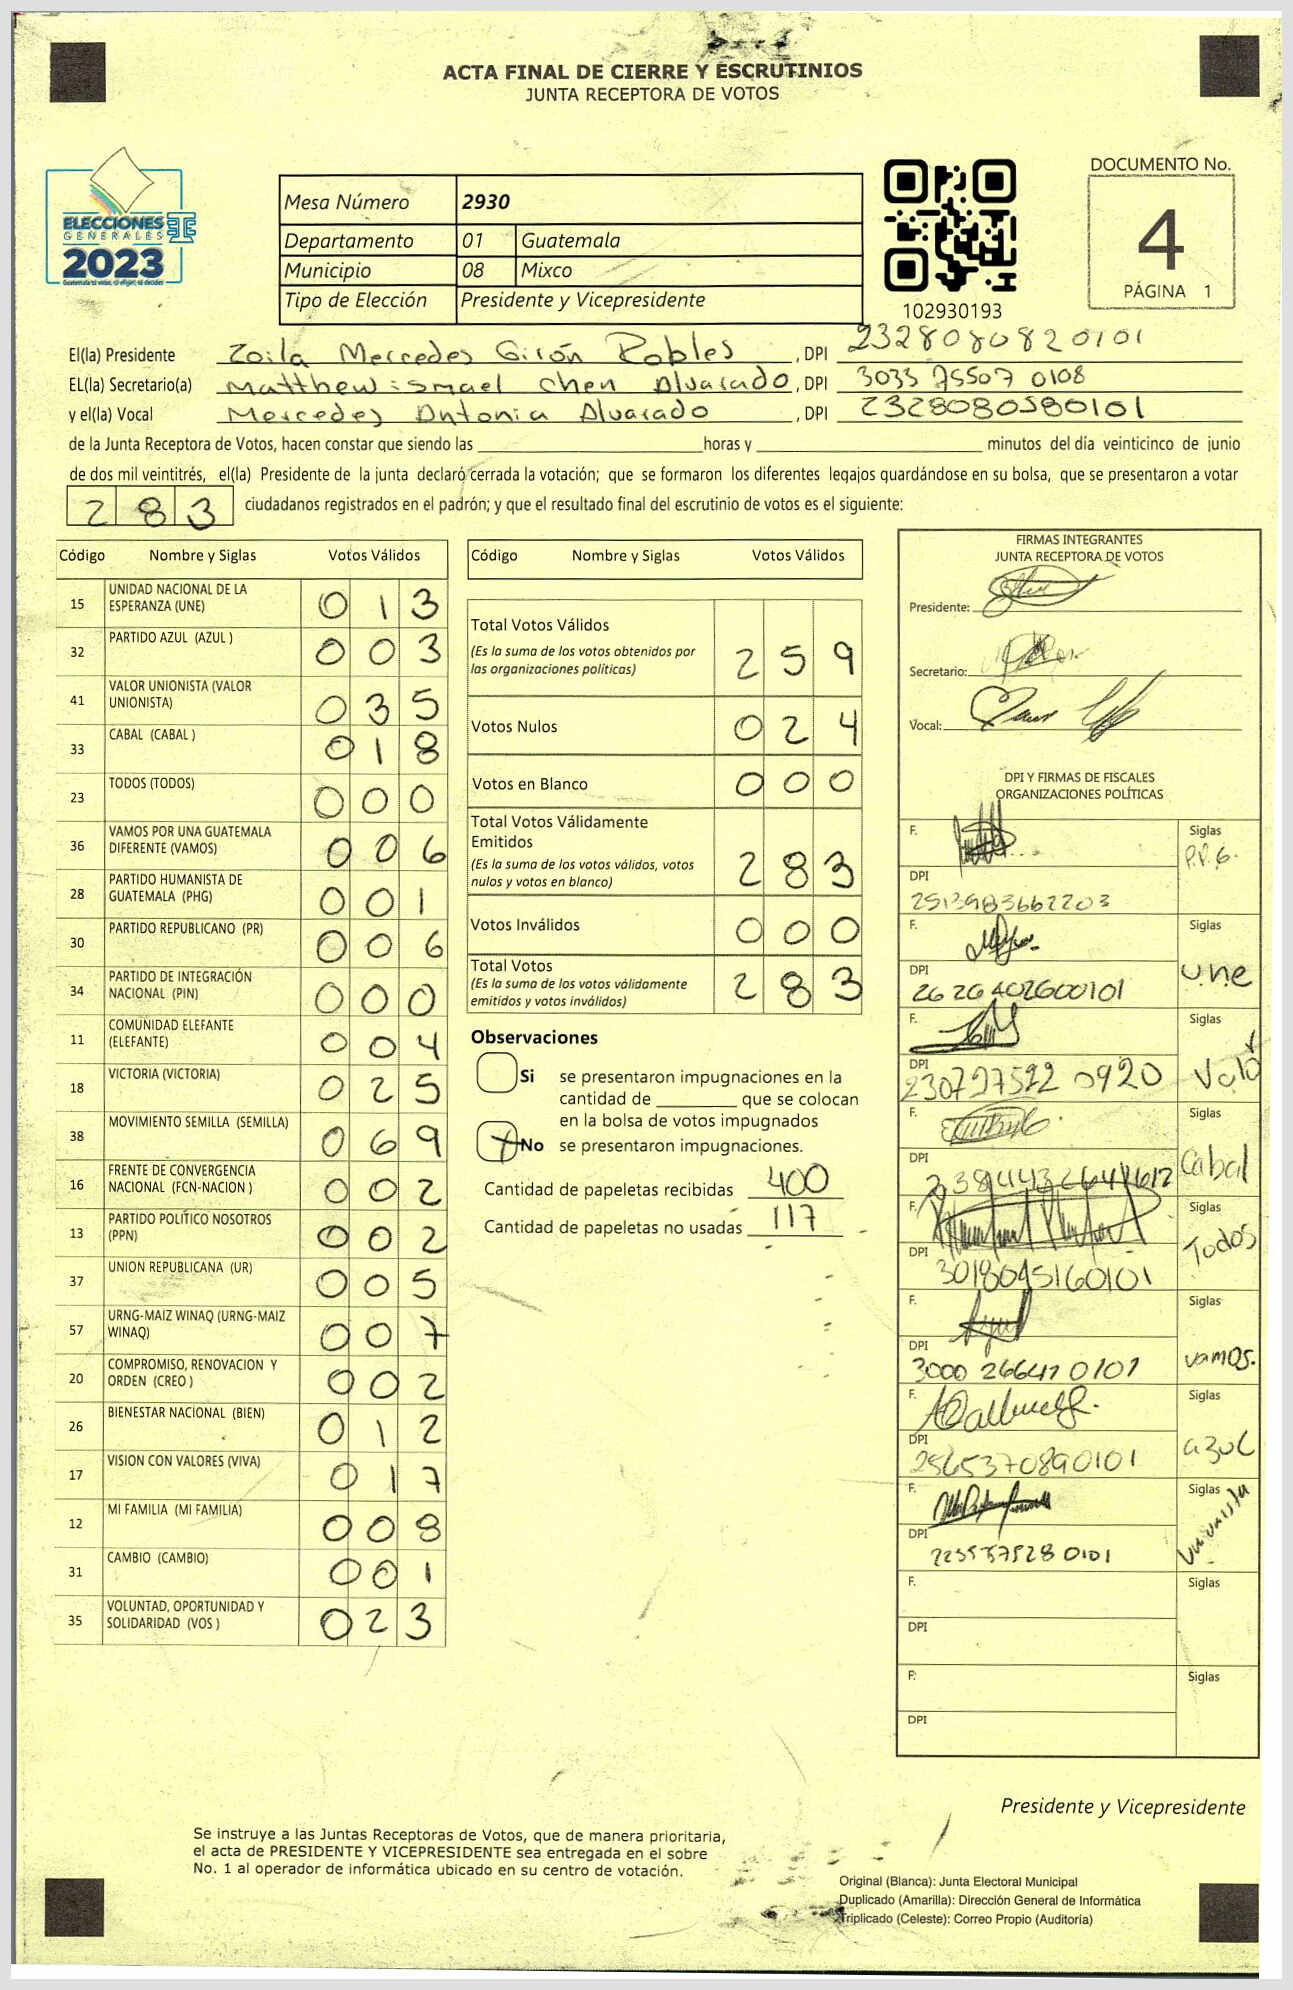 ACTA FINAL DE CIERRE Y ESCRUTINIOS
JUNTA RECEPTORA DE VOTOS
ELECCIONES
GENERALES
2023
Mesa Número 2930
Departamento 01 Guatemala
Municipio 08 Mixco
Tipo de Elección Presidente y Vicepresidente
102930193
DOCUMENTO No.
4
PÁGINA 1
El(la) Presidente Zoila Mercedes Girón Robles, DPI 2328080820101
EL(la) Secretario(a) Matthew ismael Chen Alvarado, DPI 3033 75507 0108
y el(la) Vocal Mercedes Antonia Alvarado, DPI 2328080580101
de la Junta Receptora de Votos, hacen constar que siendo las horas y minutos del día veinticinco de junio
de dos mil veintitrés, el(la) Presidente de la junta declaró cerrada la votación; que se formaron los diferentes legajos quardándose en su bolsa, que se presentaron a votar
283 ciudadanos registrados en el padrón; y que el resultado final del escrutinio de votos es el siguiente:
Código Nombre y Siglas Votos Válidos
15 UNIDAD NACIONAL DE LA ESPERANZA (UNE) 013
32 PARTIDO AZUL (AZUL ) 003
41 VALOR UNIONISTA (VALOR UNIONISTA) 035
33 CABAL (CABAL ) 018
23 TODOS (TODOS) 000
36 VAMOS POR UNA GUATEMALA DIFERENTE (VAMOS) 006
28 PARTIDO HUMANISTA DE GUATEMALA (PHG) 001
30 PARTIDO REPUBLICANO (PR) 006
34 PARTIDO DE INTEGRACIÓN NACIONAL (PIN) 000
11 COMUNIDAD ELEFANTE (ELEFANTE) 004
18 VICTORIA (VICTORIA) 025
38 MOVIMIENTO SEMILLA (SEMILLA) 069
16 FRENTE DE CONVERGENCIA NACIONAL (FCN-NACION ) 002
13 PARTIDO POLÍTICO NOSOTROS (PPN) 002
37 UNION REPUBLICANA (UR) 005
57 URNG-MAIZ WINAQ (URNG-MAIZ WINAQ) 007
20 COMPROMISO, RENOVACION Y ORDEN (CREO ) 002
26 BIENESTAR NACIONAL (BIEN) 012
17 VISION CON VALORES (VIVA) 017
12 MI FAMILIA (MI FAMILIA) 008
31 CAMBIO (CAMBIO) 001
35 VOLUNTAD, OPORTUNIDAD Y SOLIDARIDAD (VOS ) 023
Código Nombre y Siglas Votos Válidos
Total Votos Válidos 259
(Es la suma de los votos obtenidos por
las organizaciones políticas)
Votos Nulos 024
Votos en Blanco 000
Total Votos Válidamente
Emitidos 283
(Es la suma de los votos válidos, votos
nulos y votos en blanco)
Votos Inválidos 000
Total Votos 283
(Es la suma de los votos válidamente
emitidos y votos inválidos)
Observaciones
Si se presentaron impugnaciones en la
cantidad de que se colocan
en la bolsa de votos impugnados
No se presentaron impugnaciones.
Cantidad de papeletas recibidas 400
Cantidad de papeletas no usadas 117
FIRMAS INTEGRANTES
JUNTA RECEPTORA DE VOTOS
Presidente:
Secretario:
Vocal:
DPI Y FIRMAS DE FISCALES
ORGANIZACIONES POLÍTICAS
F. Siglas P.P.G.
DPI 2513983662203
F. Siglas une
DPI 2626402600101
F. Siglas
DPI 230797522 0920
F. Siglas Cabal
DPI
F. Siglas Todos
DPI 3018045160101
F. Siglas vamos.
DPI 3000 266471 0101
F. Siglas azul
DPI 2565370890101
F. Siglas Unionista
DPI 223557528 0101
F. Siglas
DPI
F. Siglas
DPI
Presidente y Vicepresidente
Se instruye a las Juntas Receptoras de Votos, que de manera prioritaria,
el acta de PRESIDENTE Y VICEPRESIDENTE sea entregada en el sobre
No. 1 al operador de informática ubicado en su centro de votación.
Original (Blanca): Junta Electoral Municipal
Duplicado (Amarilla): Dirección General de Informática
Triplicado (Celeste): Correo Propio (Auditoría)